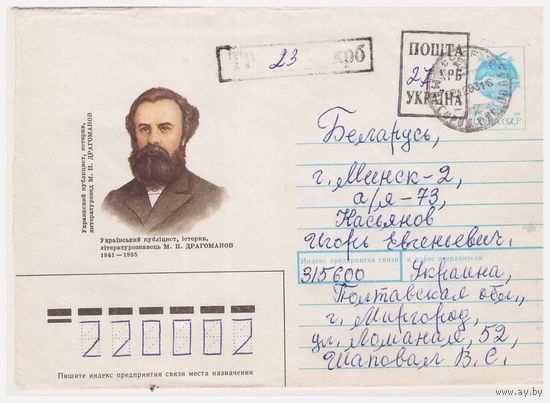 ТР 23 крб
ПОШТА
27 КРБ
УКРАЇНА
ПОЧТА СССР
Украинский публицист, историк,
литературовед М. П. ДРАГОМАНОВ
Український публіцист, історик,
літературознавець М. П. ДРАГОМАНОВ
1841—1895
Беларусь,
г. Минск-2,
а/я-73,
Касьянов
Игорь Евгеньевич.
Индекс предприятия связи и адрес отправителя
315600 Украина,
Полтавская обл.,
г. Миргород,
ул. Ломаная, 52,
Шаповал В. С.
220002
Пишите индекс предприятия связи места назначения
www.ay.by